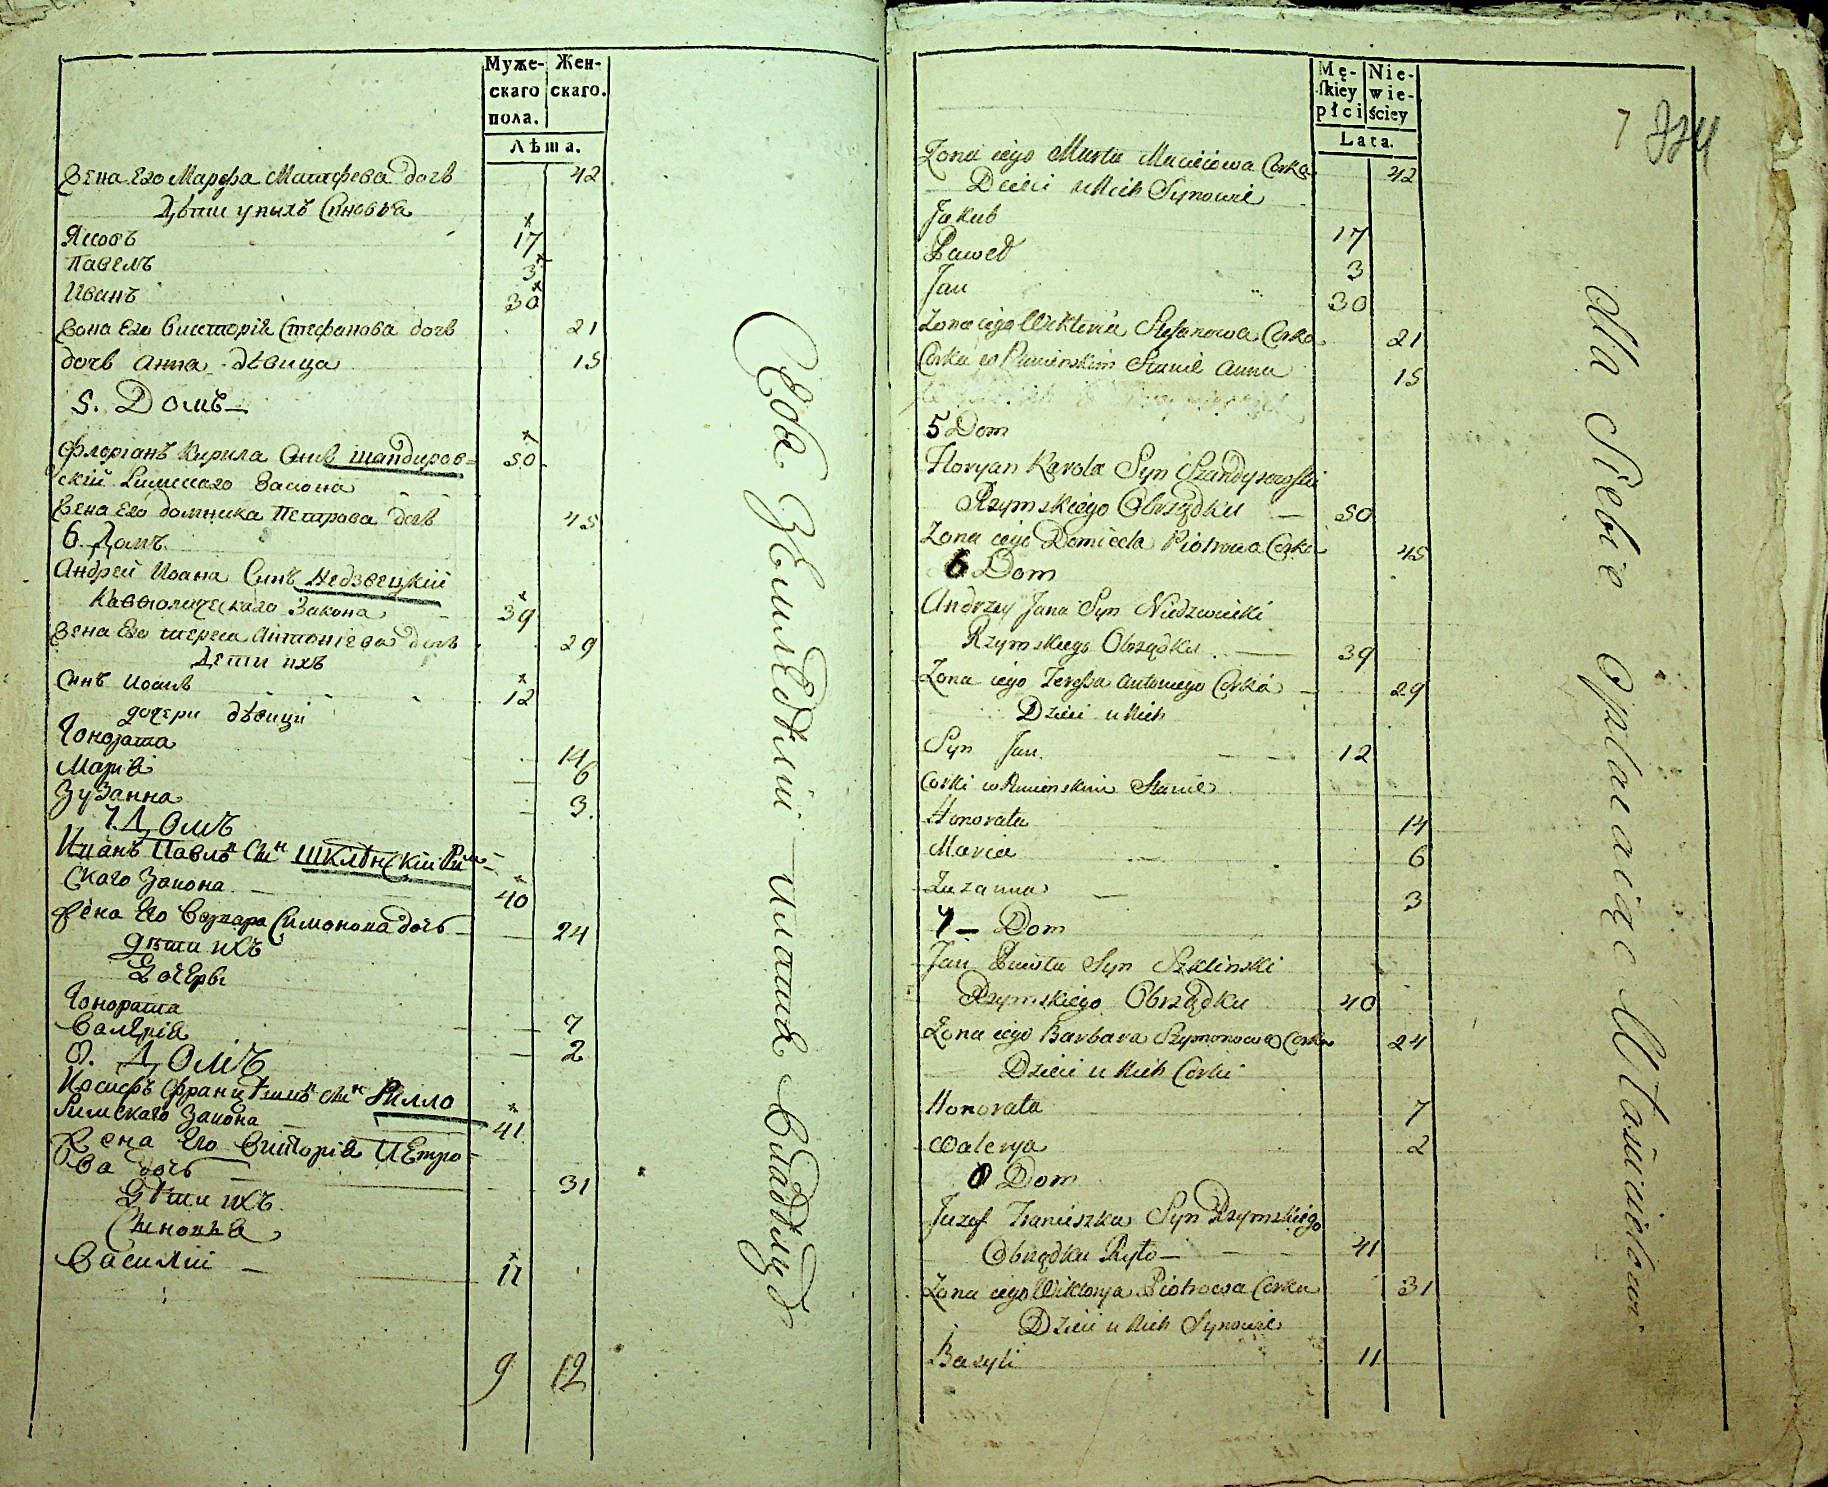 Муже-
скаго
пола.
Жен-
скаго.
Лѣта.
Жена Его Марфа Матфева дочь 42
Дѣти у ныхъ Синовья
Якобъ 17
Павелъ 3
Иванъ 30
Жона Его Викторія Стефанова дочь 21
дочь Анна дѣвица 15
5. Домъ
Флоріанъ Кирила Синъ Шандиров=
скій Римскаго Закона 50
Жена Его Домника Петрова дочь 45
6. Домъ
Андрей Иоана Синъ Недзвецкій
Каѳѳолическаго Закона 39
Жена Его Тереса Антоніева дочь 29
Дети ихъ
Синъ Иоанъ 12
дочери дѣвици
Гонората 14
Марія 6
Зузанна 3.
7. Домъ
Иванъ Павла Синъ Шклѣнскій Рим=
скаго Закона 40
Жена Его Варвара Симонова дочь 24
Дѣти ихъ
Дочеры
Гонората 7
Валерія 2
8. Домъ
Иосифъ Францѣшка Синъ Рилло
Римскаго Закона 41
Жена Его Викторія Петро=
ва дочь 31
Дѣти ихъ
Синовья
Василій 11
9 12
Себѣ Земледѣлій платя Владѣлцу
Mę-
ſkiey
płci
Nie-
wie-
ściey
Lata.
7
Zona iego Marta Macieiowa Corka 42
Dzieci u Nich Synowie
Jakub 17
Paweł 3
Jan 30
Zona iego Wiktoria Stefanowa Corka 21
Corka w Panienskim Stanie Anna 15
5 Dom
Floryan Karola Syn Szandyrowski
Rzymskiego Obrządku 50
Zona iego Domicela Piotrowa Corka 45
6 Dom
Andrzey Jana Syn Niedzwiecki
Rzymskiego Obrządku 39
Zona iego Teressa Antoniego Corka 29
Dzieci u Nich
Syn Jan 12
Corki w Panienskim Stanie
Honorata 14
Maria 6
Zuzanna 3
7 Dom
Jan Pawła Syn Szklinski
Rzymskiego Obrządku 40
Zona iego Barbara Szymonowa Corka 24
Dzieci u Nich Corki
Honorata 7
Walerya 2
8 Dom
Juzef Franciszka Syn Rzymskiego
Obrządku Ryło 41
Zona iego Wiktorya Piotrowa Corka 31
Dzieci u Nich Synowie
Bazyli 11
dla Siebie Opłacaiąc Właścicielowi